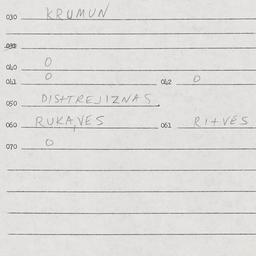 030 KRUMUN
040 O
041 O 042 O
050 DISTREJIZNAS
060 RUKAVES 061 RITVES
070 O